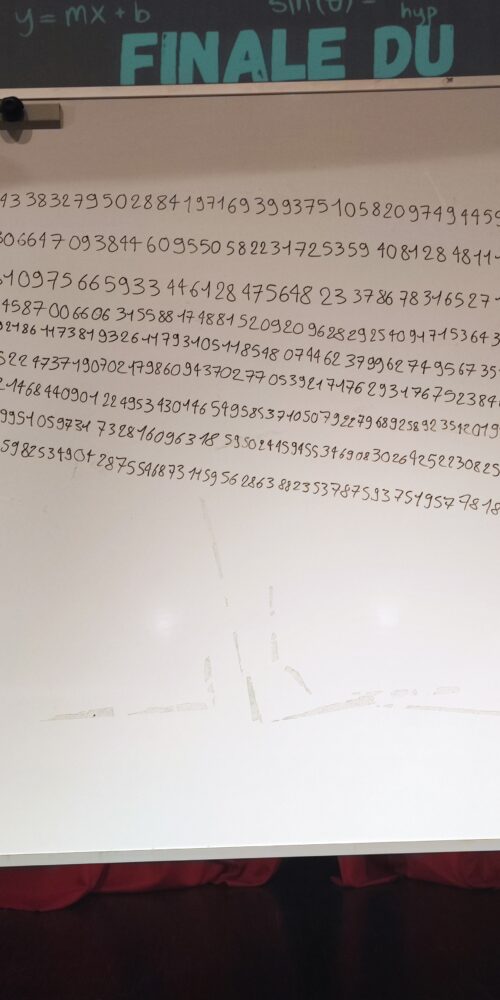 y = mx + b sin(θ) = hyp
FINALE DU
43 38327950288419716939937510582097494459
306647 093844 60955058223172535940812848111
51097566593344612847564823378678316527
4587006606315588174881520920962829254091715364 3
92186117381932611793105118548074462379962749567351
52247371907021798609437027705392171762931767523846
21468440901224953430146549585371050792279689258923542019
99510597317328160963185950244594553469083026425223082 5
598253490428755468731159562863882353787593751957 7818